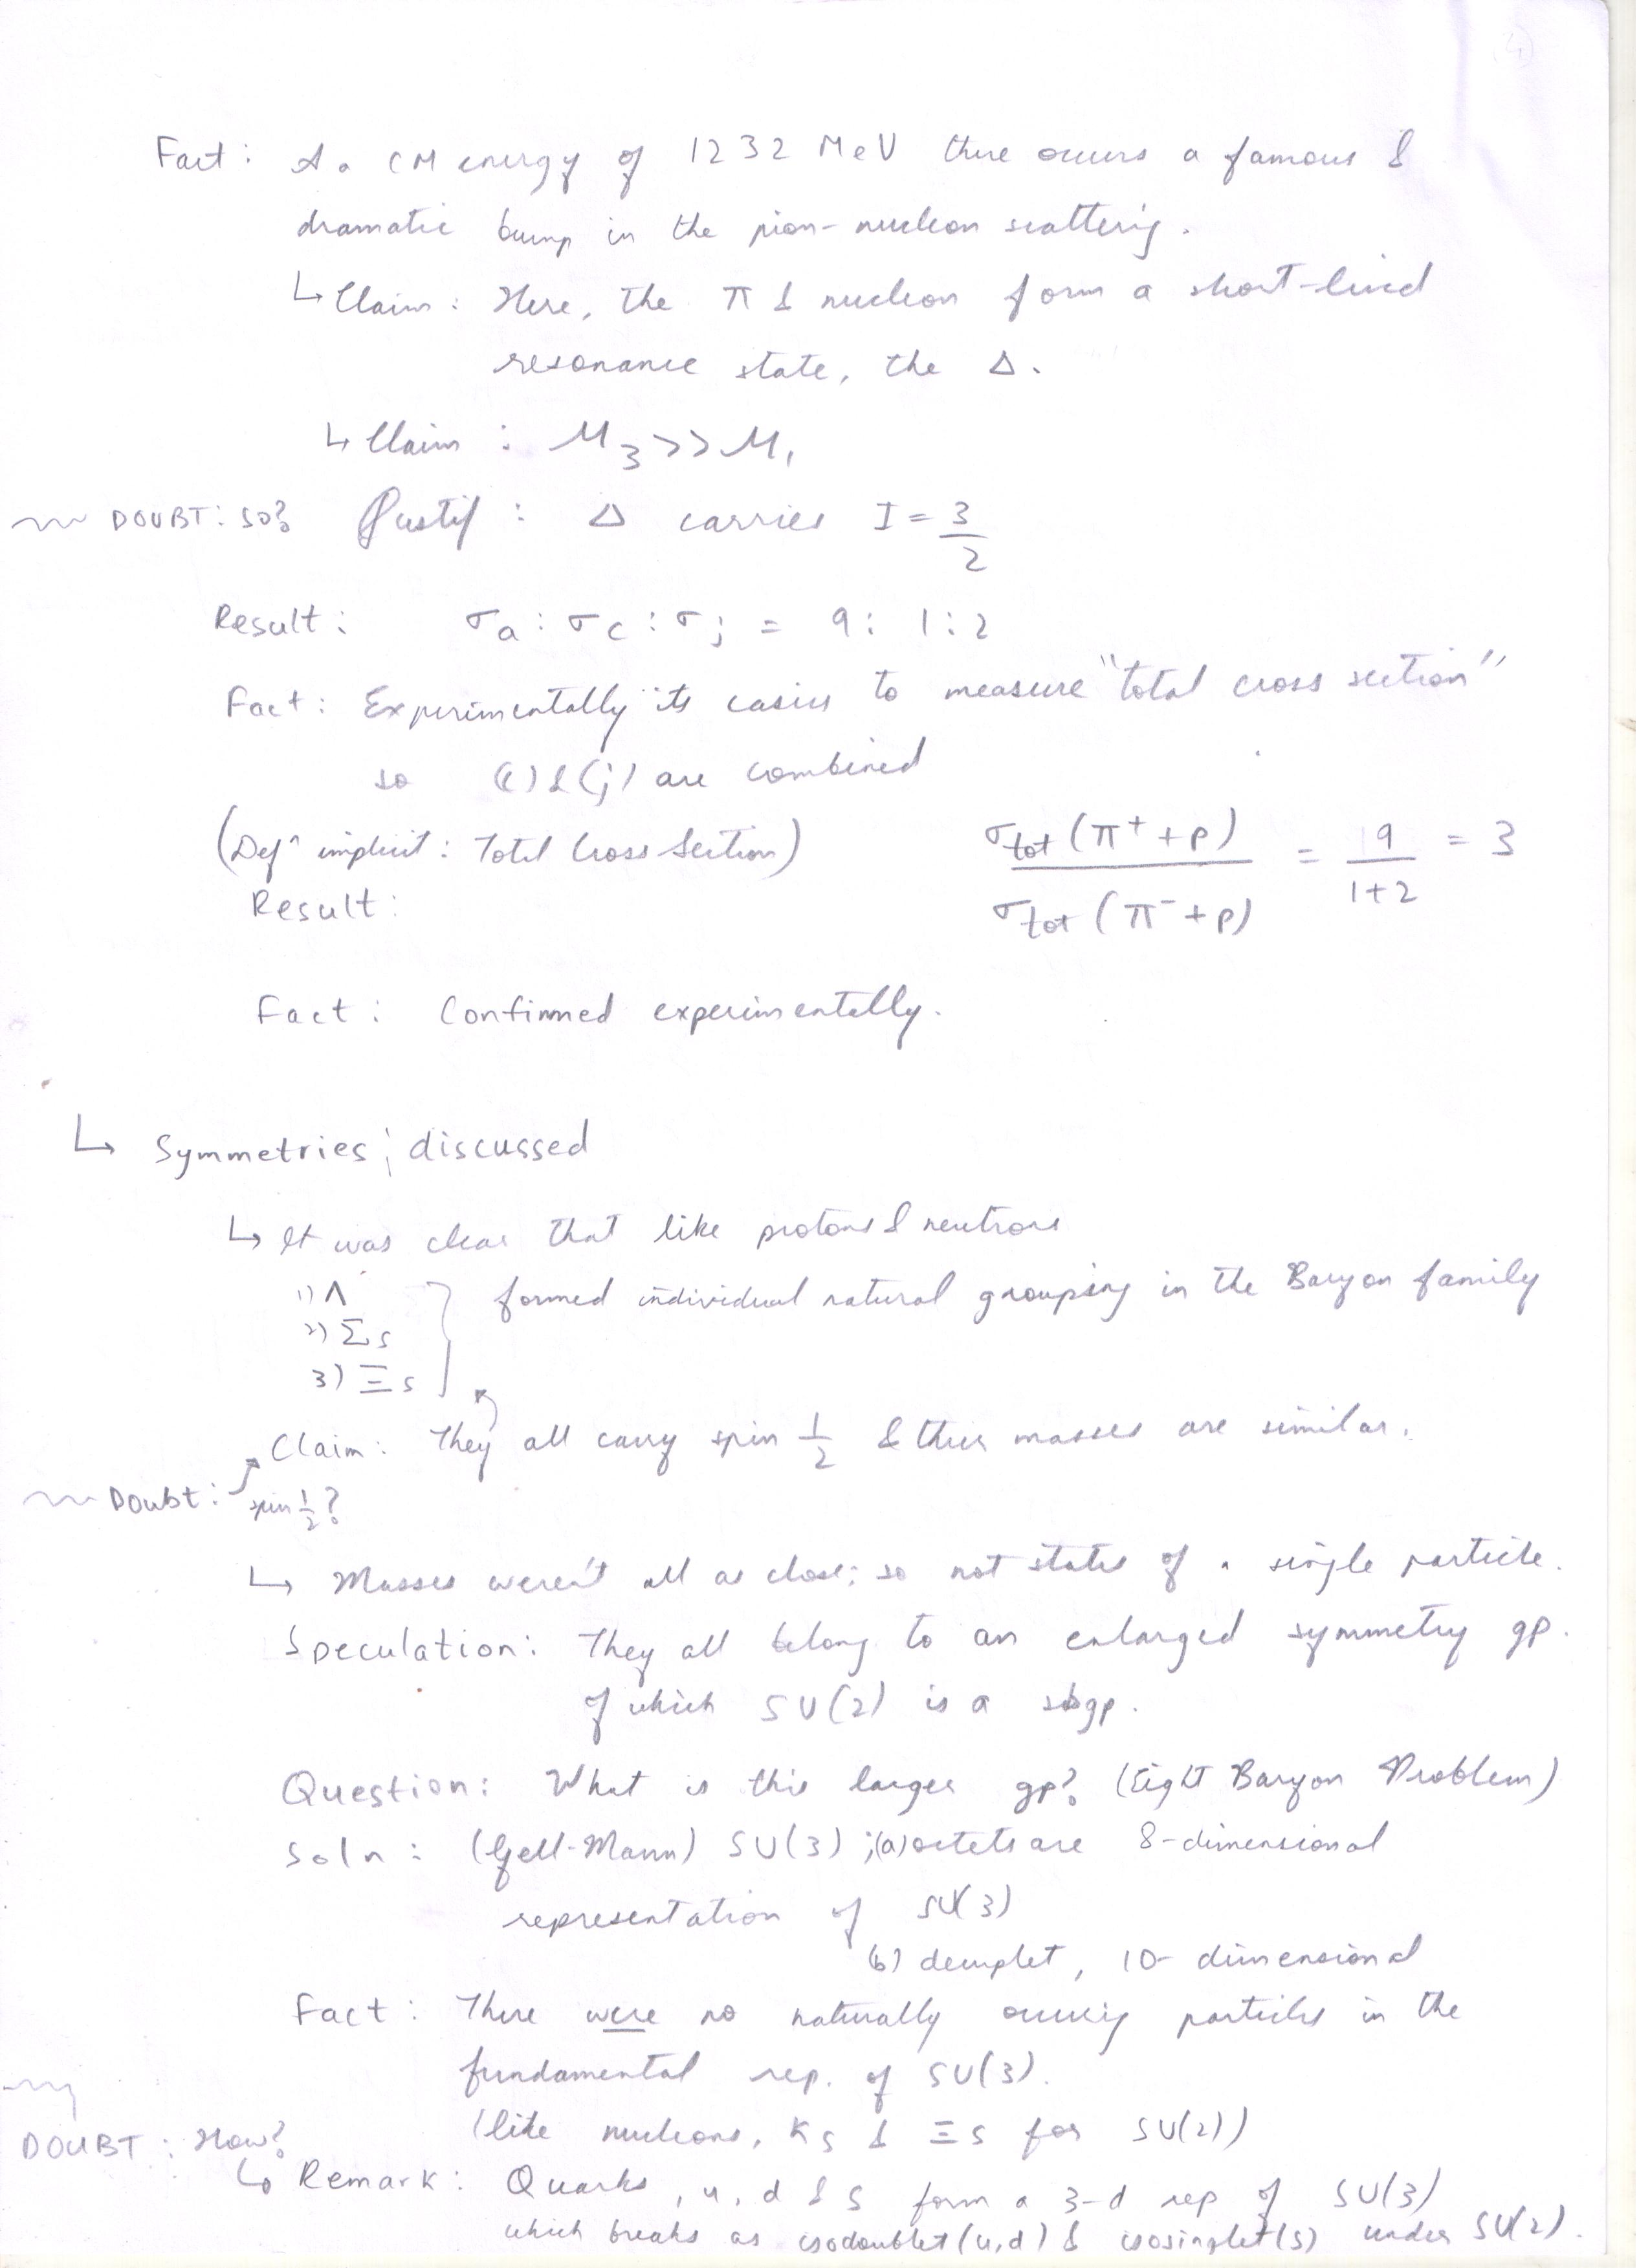 (4)
Fact: At a CM energy of 1232 MeV there occurs a famous &
dramatic bump in the pion-nucleon scattering.
↳ Claim: Here, the π & nucleon form a short-lived
resonance state, the Δ.
↳ Claim : M₃ >> M₁
DOUBT: so? Justif : Δ carries I = 3/2
Result: σa : σc : σj = 9 : 1 : 2
Fact: Experimentally its easier to measure "total cross section"
so (c) & (j) are combined
(Defⁿ implicit: Total Cross Section) σtot (π⁺ + p) / σtot (π⁻ + p) = 9/(1+2) = 3
Result:
Fact: Confirmed experimentally.
↳ Symmetries; discussed
↳ It was clear that like protons & neutrons
1) Λ
2) Σs
3) Ξs
formed individual natural grouping in the Baryon family
Claim: They all carry spin 1/2 & their masses are similar.
Doubt: spin 1/2?
↳ Masses weren't all as close; so not states of a single particle.
Speculation: They all belong to an enlarged symmetry gp.
of which SU(2) is a sbgp.
Question: What is this larger gp? (Eight Baryon Problem)
Soln: (Gell-Mann) SU(3) ;(a) octets are 8-dimensional
representation of SU(3)
(b) decuplet, 10-dimensional
Fact: There were no naturally occuring particles in the
fundamental rep. of SU(3).
(like nucleons, Ks & Ξs for SU(2))
DOUBT: How?
↳ Remark: Quarks, u, d & s form a 3-d rep of SU(3)
which breaks as isodoublet (u,d) & isosinglet (s) under SU(2).